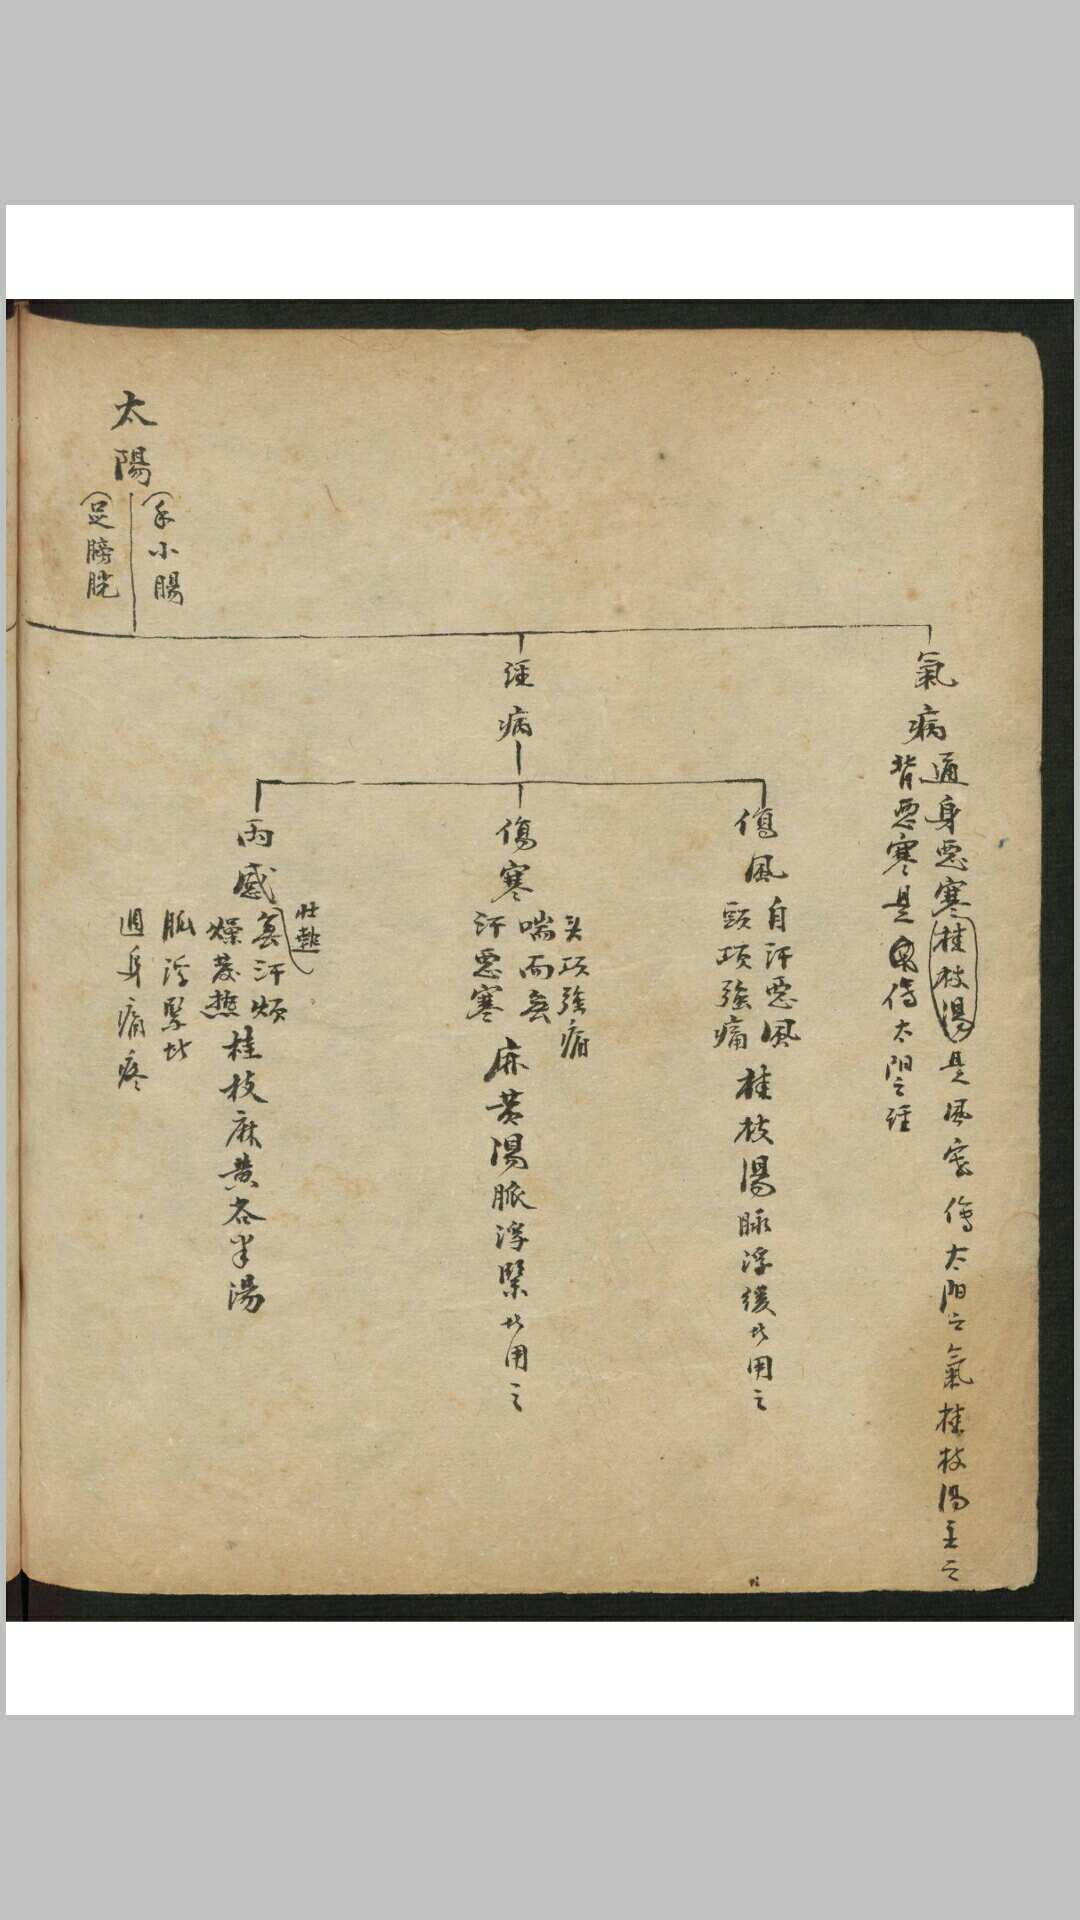 太陽
(手小腸
(足膀胱
氣病
通身惡寒桂枝湯是風寒傷太阳之氣桂枝湯主之
背惡寒是傷太阳之經
經病
傷風
自汗惡風
頭項強痛
桂枝湯脉浮緩此用之
傷寒
头項強痛
喘而無
汗惡寒
麻黄湯脈浮緊此用之
兩感
壮熱
無汗煩
燥發熱
脈浮緊此
週身痛疼
桂枝麻黄各半湯